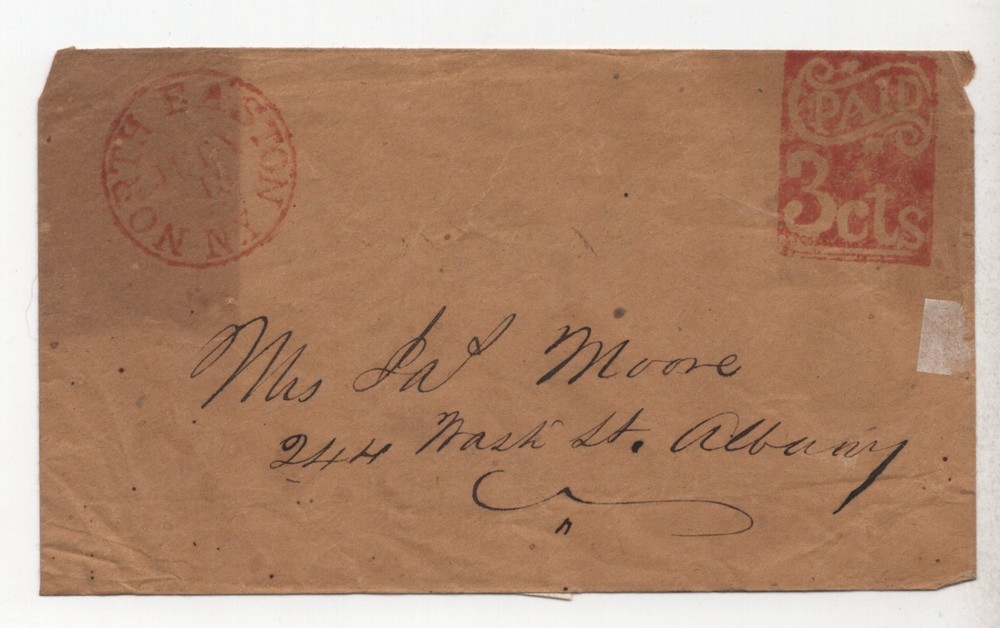 NORTH EASTON NY
PAID
3cts
Mrs Jas Moore
244 Wash St. Albany